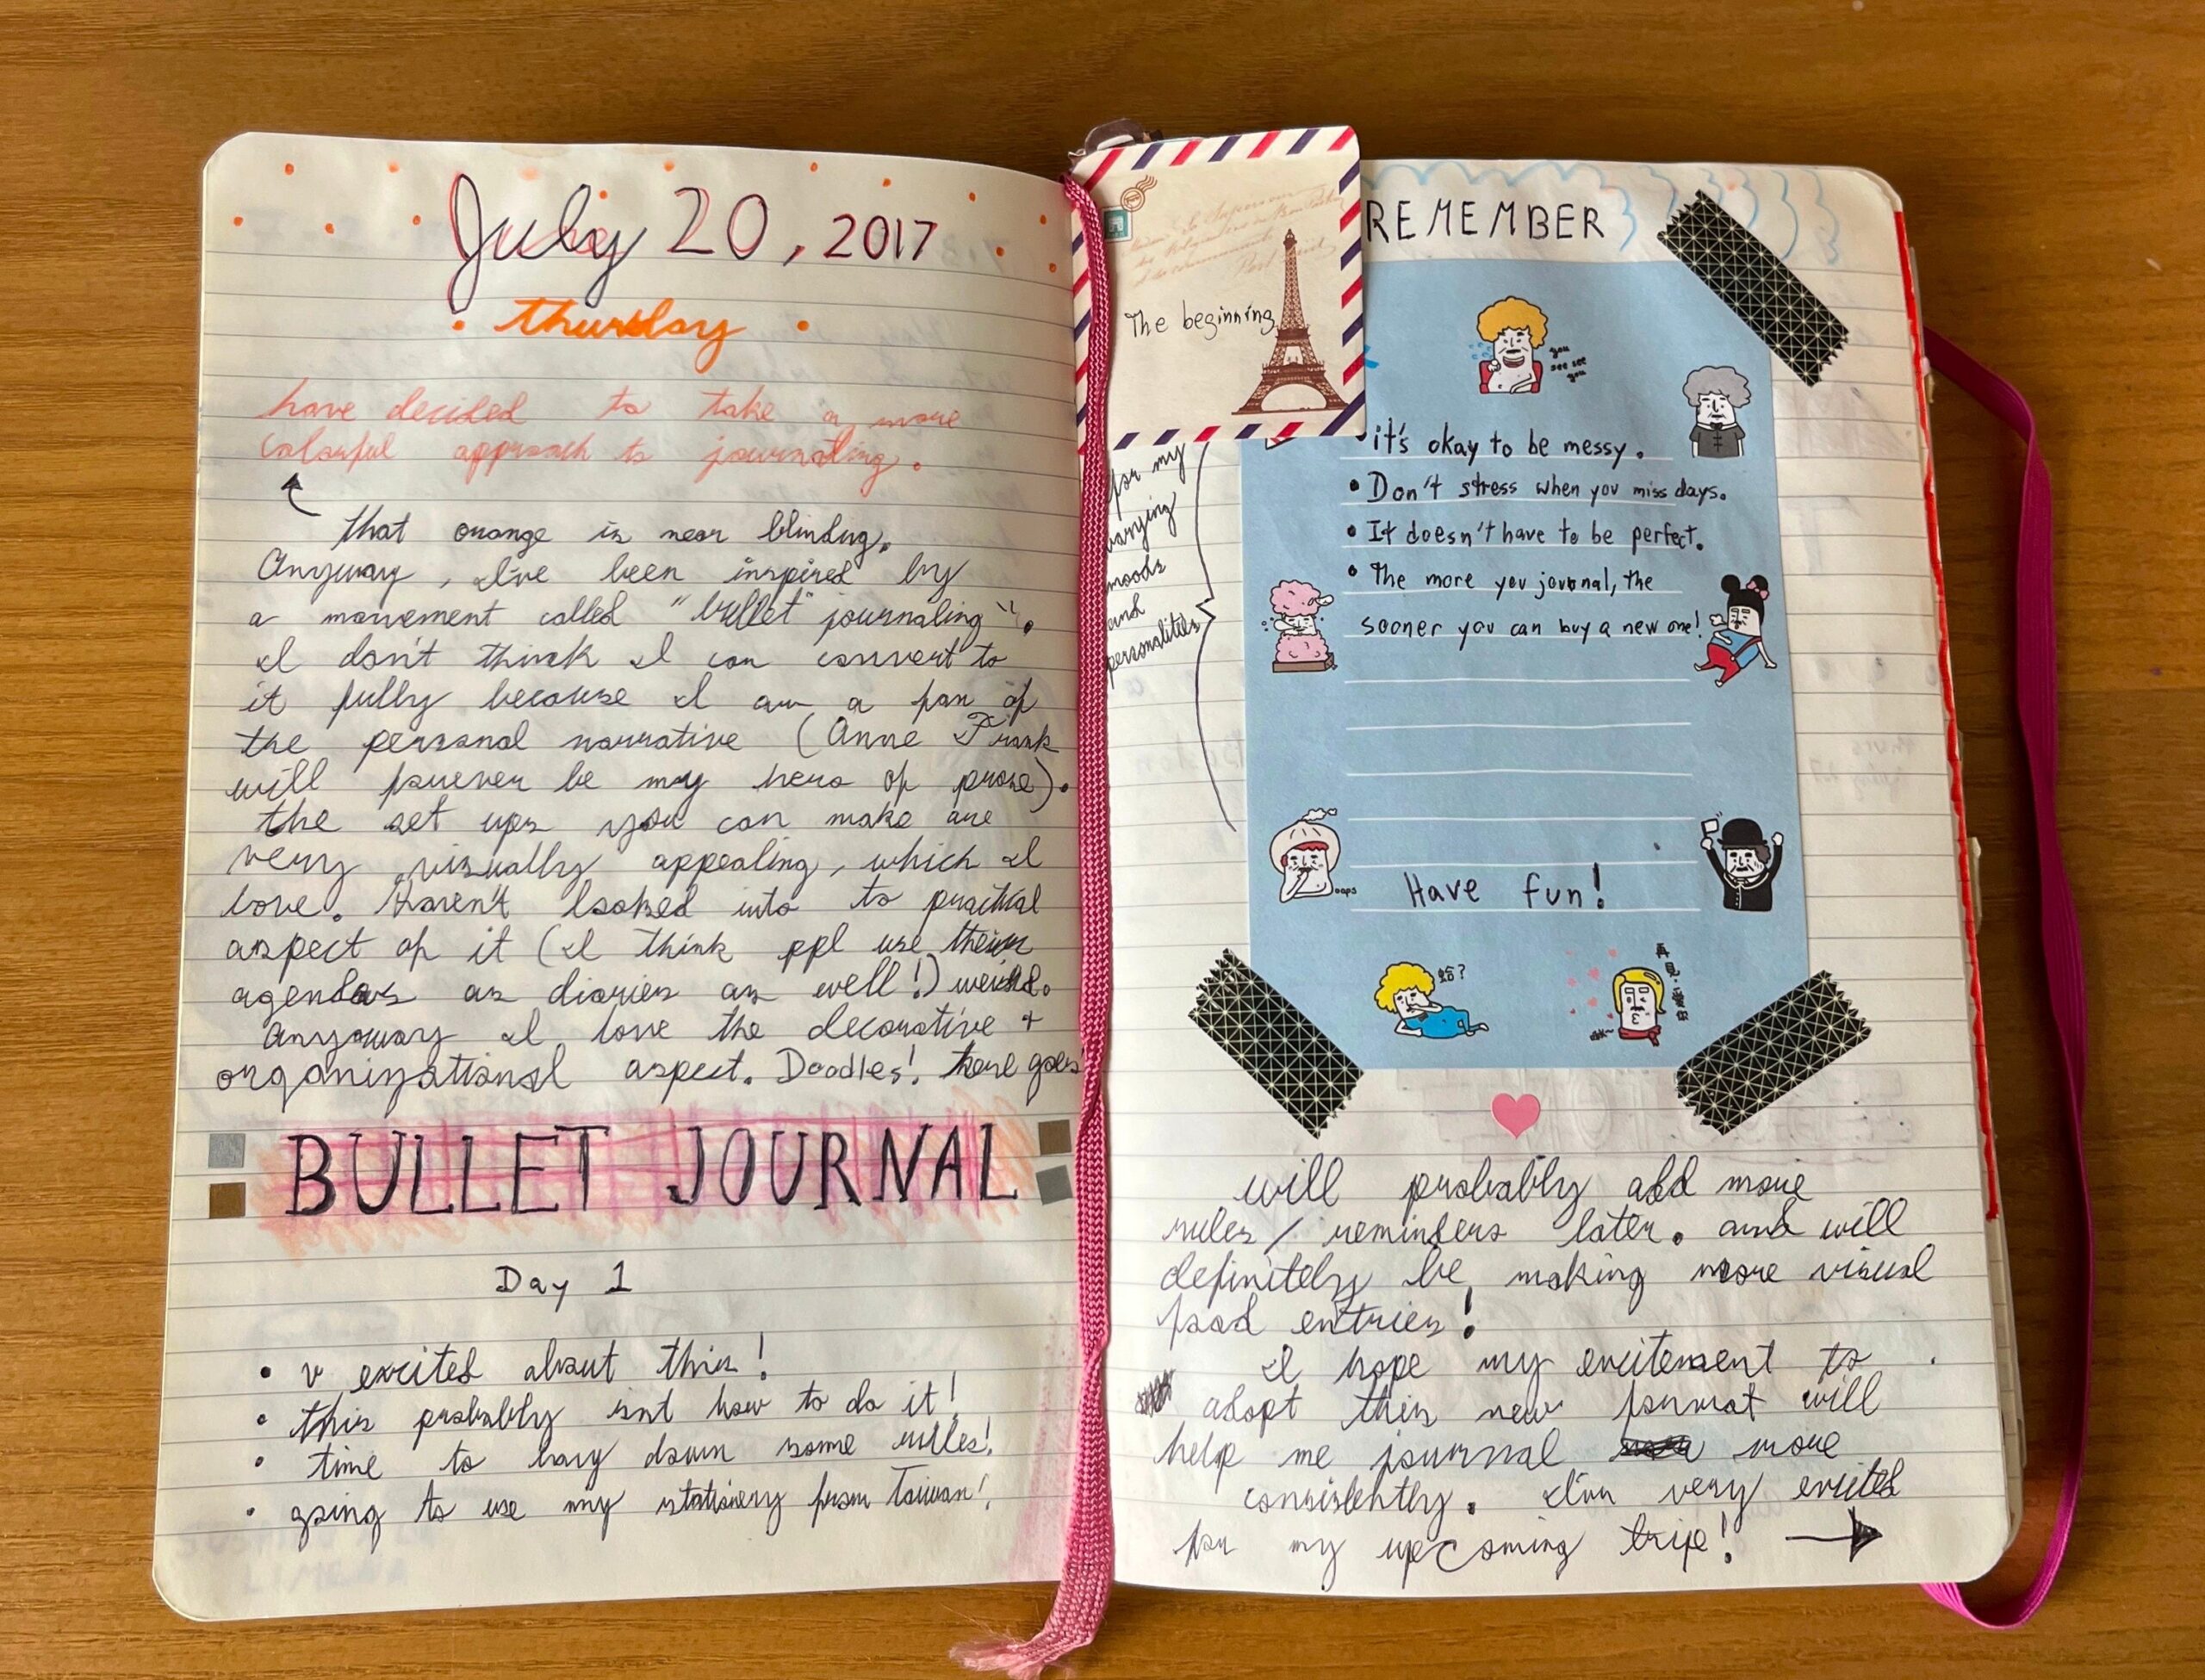 July 20, 2017
• thursday •
have decided to take a more
colorful approach to journaling.
that orange is near blinding.
Anyway, I've been inspired by
a movement called "bullet journaling".
I don't think I can convert to
it fully because I am a fan of
the personal narrative (Anne Frank
will forever be my hero of prose).
the set ups you can make are
very visually appealing, which I
love. Haven't looked into to practical
aspect of it (I think ppl use their
agendas as diaries as well!) weird.
Anyway I love the decorative +
organizational aspect. Doodles! here goes
BULLET JOURNAL
Day 1
• v excited about this!
• this probably isnt how to do it!
• time to lay down some rules!
• going to use my stationery from Taiwan!
The beginning
for my
varying
moods
and
personalities
REMEMBER
you
see see
you
• it's okay to be messy.
• Don't stress when you miss days.
• It doesn't have to be perfect.
• The more you journal, the
sooner you can buy a new one!
oops
Have fun!
蛤?
再見,愛
will probably add more
rules/reminders later. and will
definitely be making more visual
food entries!
I hope my excitement to
adopt this new format will
help me journal more
consistently. I'm very excited
for my upcoming trip!